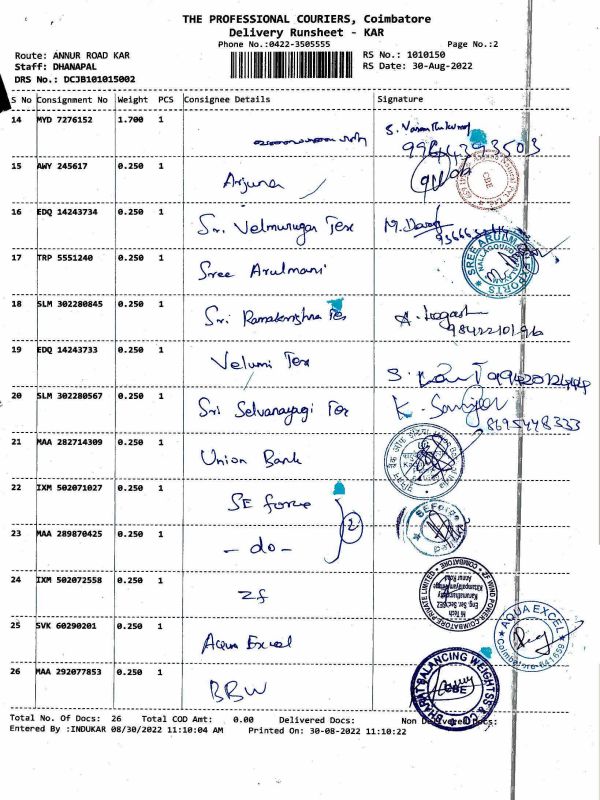 THE PROFESSIONAL COURIERS, Coimbatore
Delivery Runsheet - KAR
Phone No.:0422-3505555 Page No.:2
Route: ANNUR ROAD KAR RS No.: 1010150
Staff: DHANAPAL RS Date: 30-Aug-2022
DRS No.: DCJB101015002
S No Consignment No Weight PCS Consignee Details Signature
14 MYD 7276152 1.700 1
9944393503
15 AWY 245617 0.250 1
Arjuna
16 EDQ 14243734 0.250 1
Sri. Velmurugan Tex
17 TRP 5551240 0.250 1
Sree Arulmani
SREE ARULMANI EXPORTS
18 SLM 302280845 0.250 1
Sri Ramakrishna Tex
9842210196
19 EDQ 14243733 0.250 1
Velumi Tex
20 SLM 302280567 0.250 1
Sri Selvanayagi Tex
8695448333
21 MAA 282714309 0.250 1
Union Bank
22 IXM 502071027 0.250 1
SE force
2
23 MAA 289870425 0.250 1
- do -
SEForce
24 IXM 502072558 0.250 1
Zf
ZF WIND POWER COIMBATORE PRIVATE LIMITED
COIMBATORE
25 SVK 60290201 0.250 1
Aqua Excel
AQUA EXCEL
Coimbatore-641659
26 MAA 292077853 0.250 1
BBW
BHARAT BALANCING WEIGHTSS & CO
CBE
Total No. Of Docs: 26 Total COD Amt: 0.00 Delivered Docs: Non Delivered Docs:
Entered By :INDUKAR 08/30/2022 11:10:04 AM Printed On: 30-08-2022 11:10:22